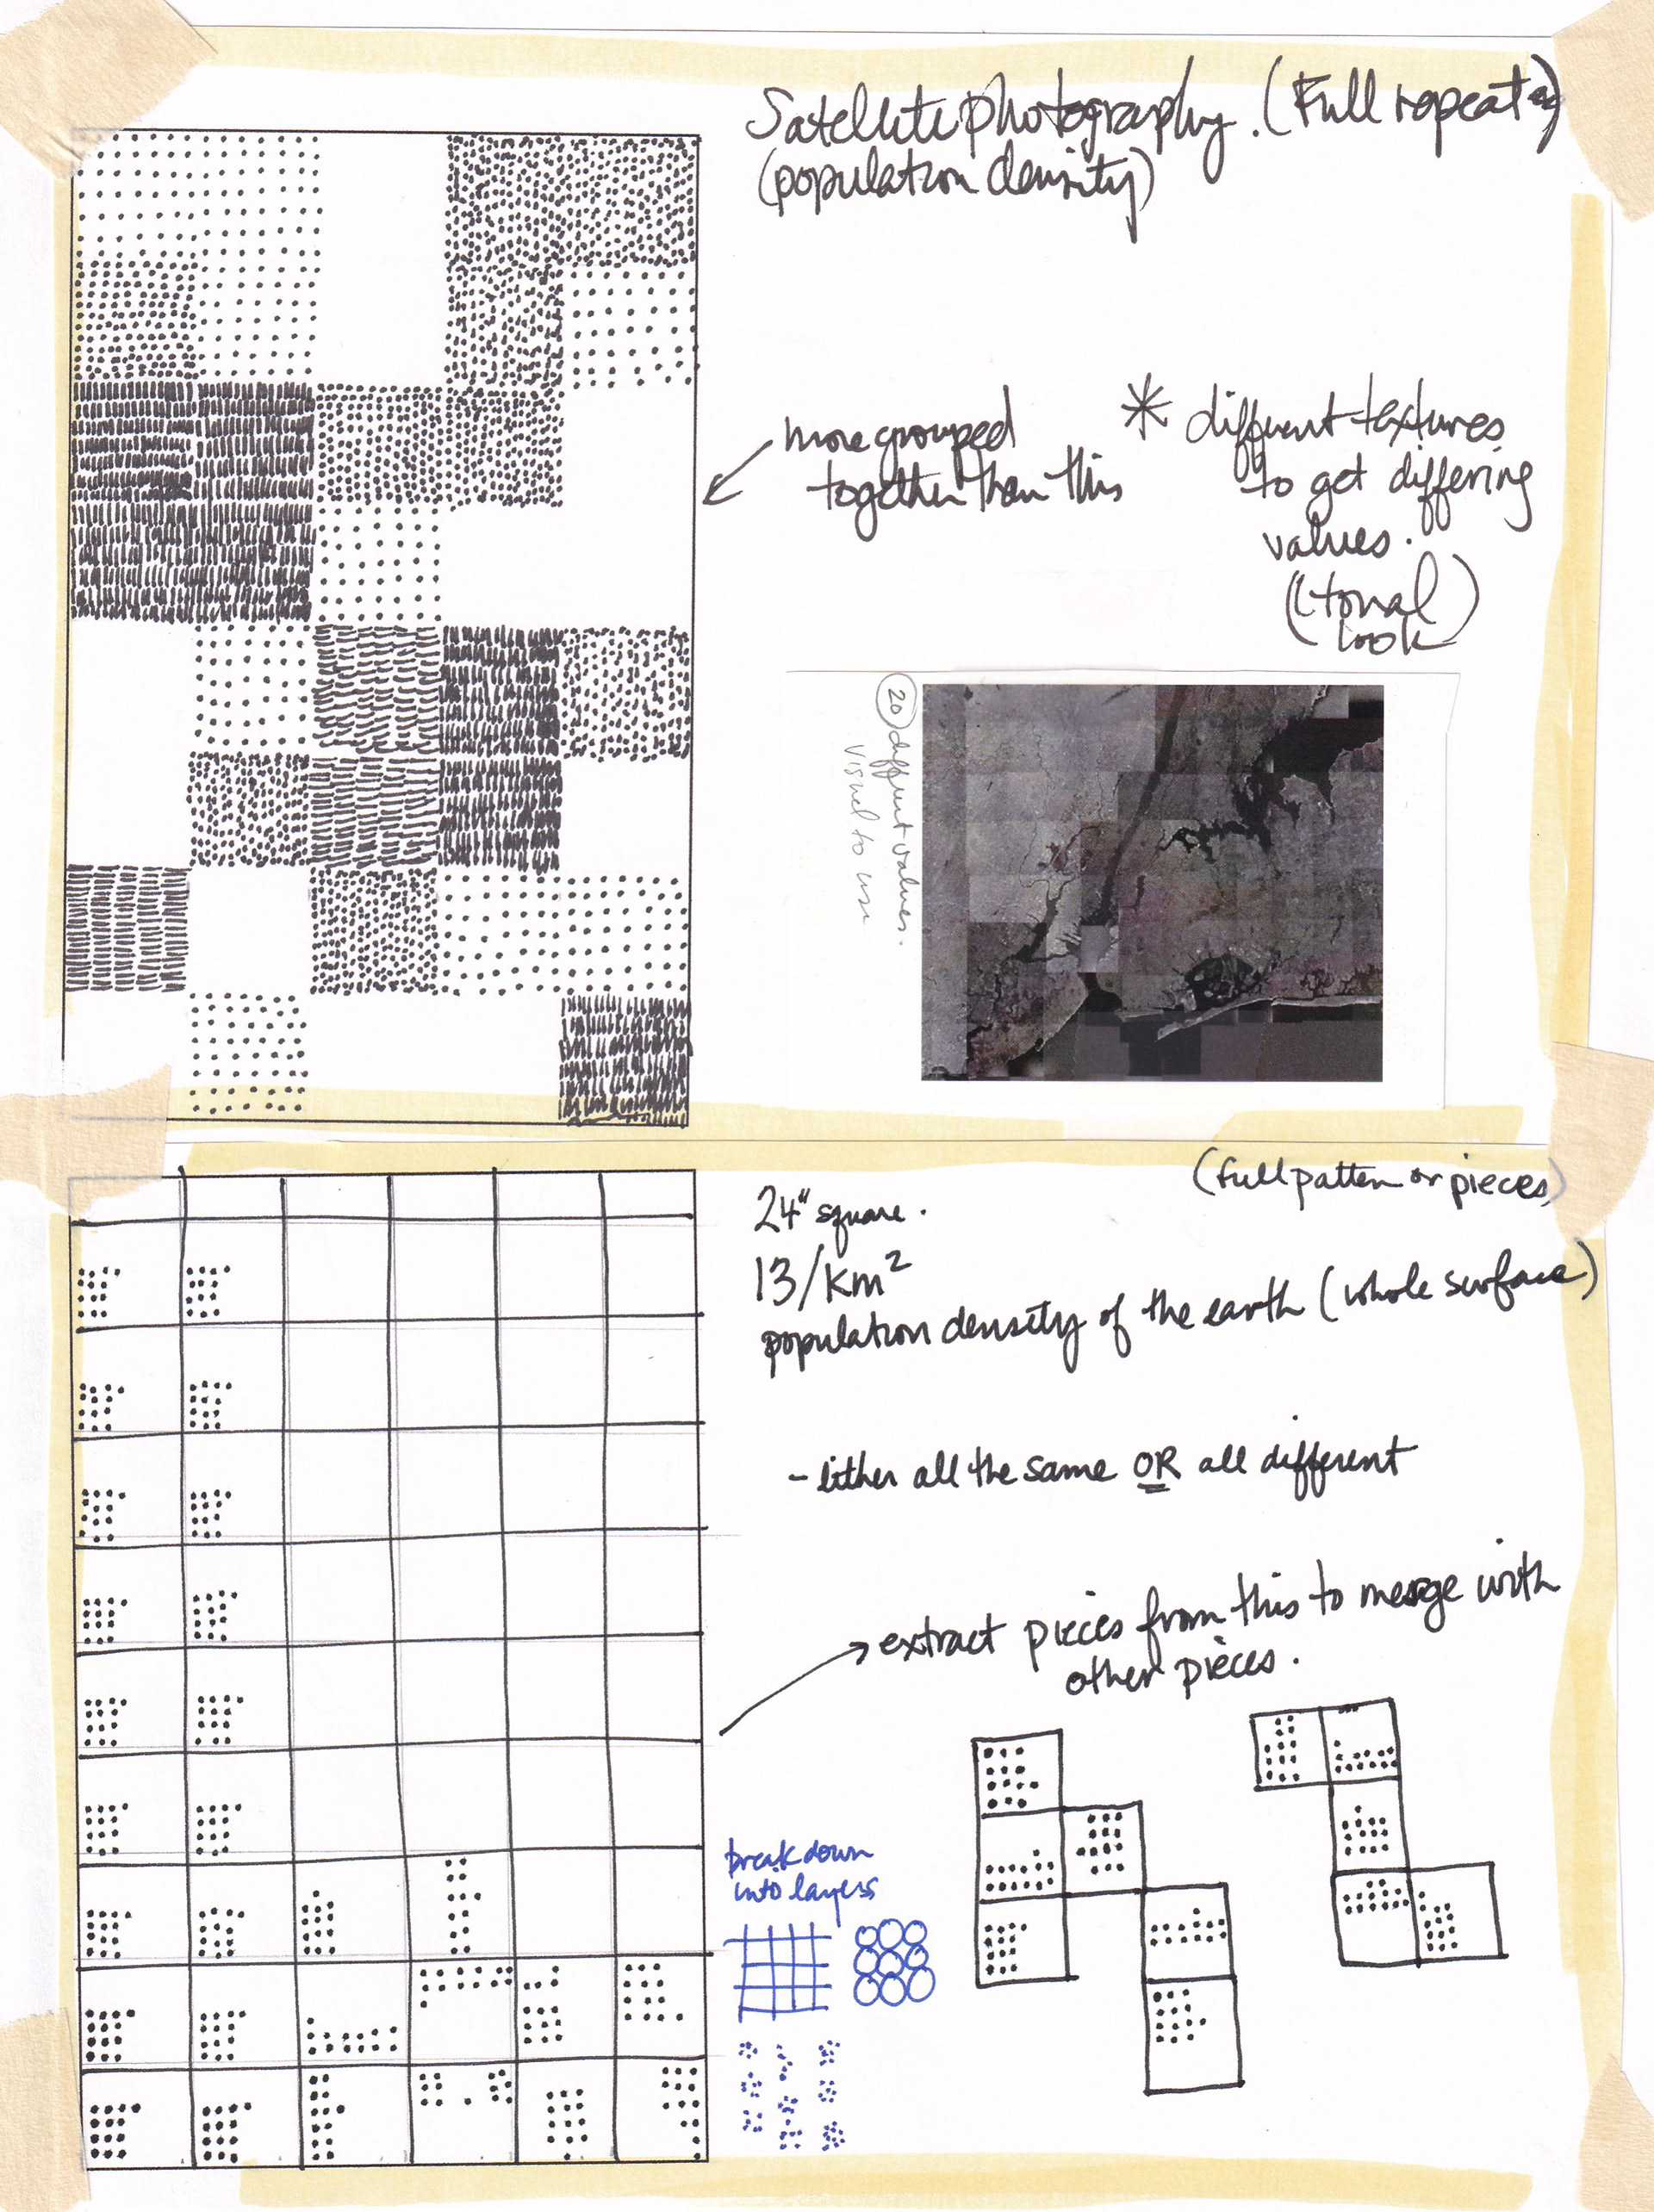 Satellite photography. (Full repeat)
(population density)
more grouped
together than this
* different textures
to get differing
values.
(tonal
look)
20 different values.
visual to use
(full pattern or pieces)
24" square.
13/km²
population density of the earth (whole surface)
- either all the same OR all different
extract pieces from this to merge with
other pieces.
break down
into layers